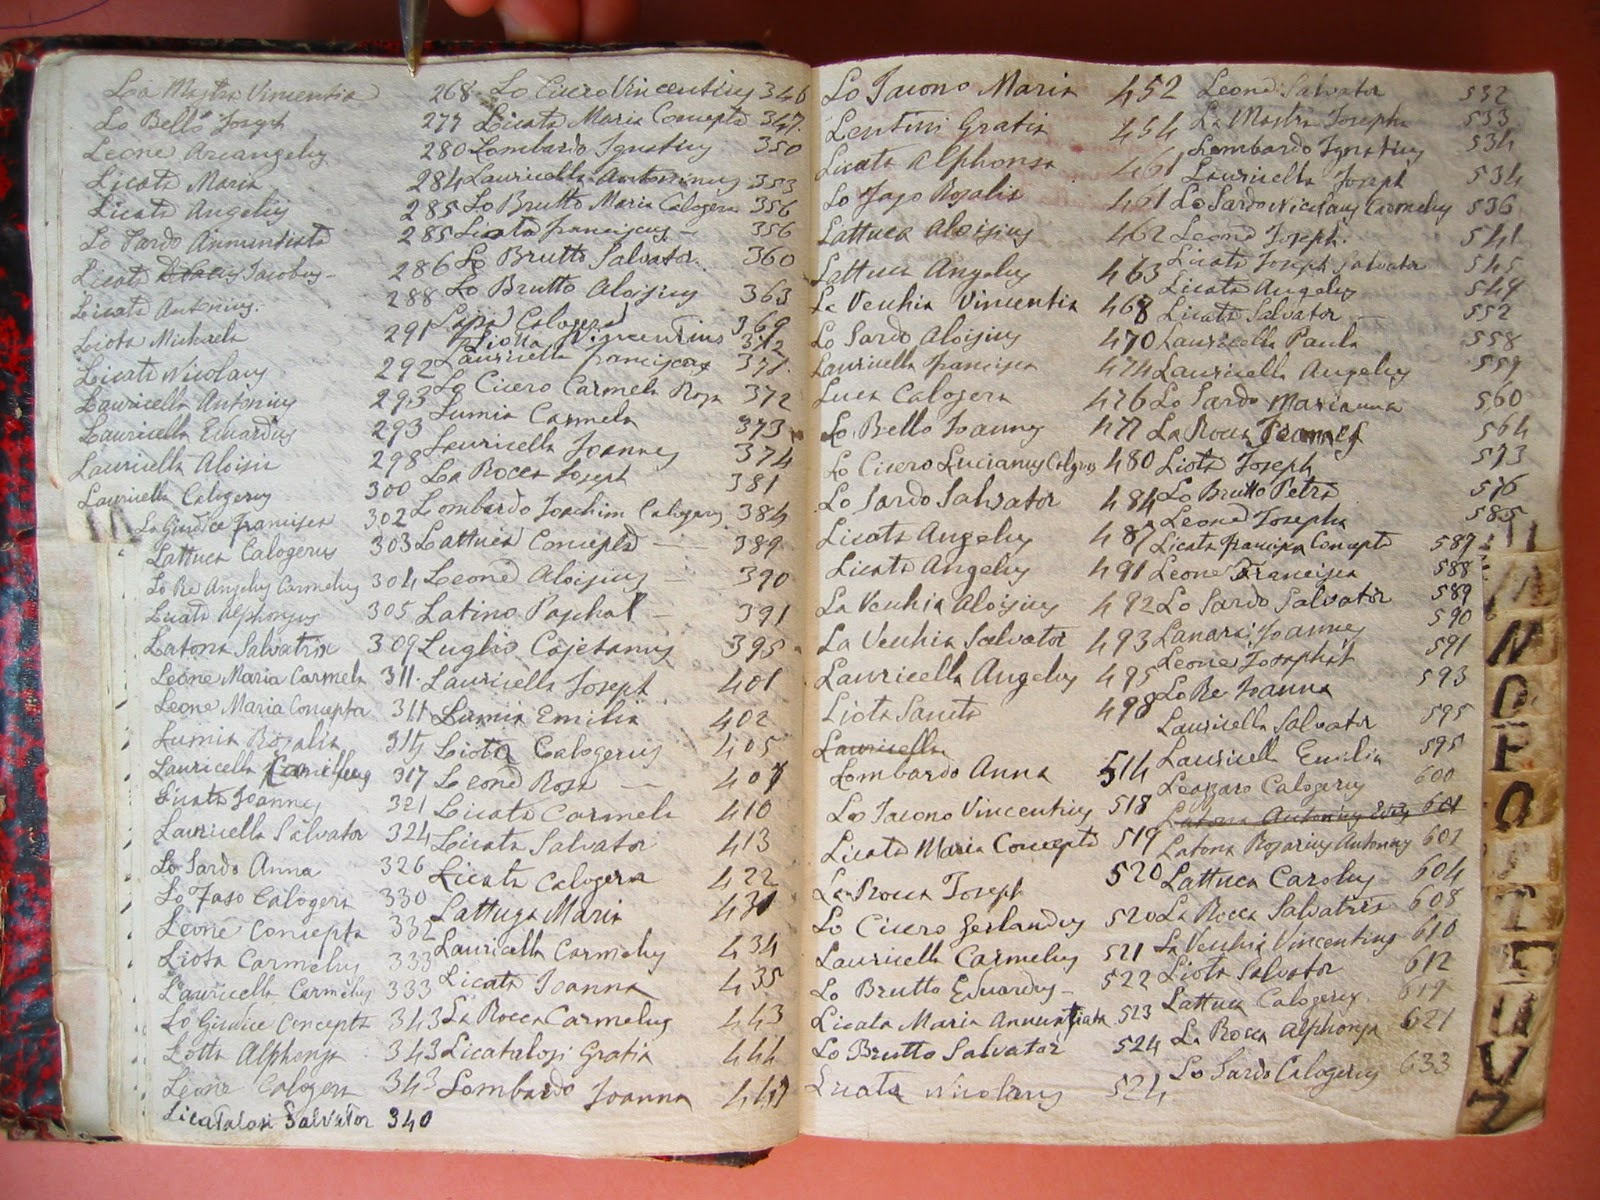 La Mastra Vincentia 268
Lo Bello Joseph 277
Leone Arcangelus 280
Licata Maria 284
Licata Angelus 285
Lo Sardo Annuntiata 285
Licata Jacobus 286
Licata Antonius 288
Liotta Michaela 291
Licata Nicolaus 292
Lauricella Antonius 293
Lauricella Eduardus 293
Lauricella Aloisia 298
Lauricella Calogerus 300
Lo Giudice Francisca 302
Lattuca Calogerus 303
Lo Re Angelus Carmelus 304
Licata Alphonsus 305
Latona Salvatrix 309
Leone Maria Carmela 311
Leone Maria Concepta 311
Lumia Rosalia 315
Lauricella Carmelus 317
Licata Joannes 321
Lauricella Salvator 324
Lo Sardo Anna 326
Lo Faso Calogera 330
Leone Concepta 332
Liota Carmelus 333
Lauricella Carmelus 333
Lo Giudice Concepta 343
Lotta Alphonsa 343
Leone Calogera 343
Licatalosi Salvator 340
Lo Cicero Vincentius 346
Licata Maria Concepta 347
Lombardo Ignatius 350
Lauricella Antoninus 353
Lo Brutto Maria Calogera 356
Licata Franciscus 356
Lo Brutto Salvator 360
Lo Brutto Aloisius 363
Calogera 369
Liotta Vincentius 372
Lauricella Francisca 371
Lo Cicero Carmela Rosa 372
Lumia Carmela 373
Lauricella Joannes 374
La Rocca Joseph 381
Lombardo Joachim Calogerus 384
Lattuca Concepta 389
Leone Aloisius 390
Latino Paschal 391
Luglio Cajetanus 395
Lauricella Joseph 401
Lumia Emilia 402
Liota Calogerus 405
Leone Rosa 407
Licata Carmela 410
Licata Salvator 413
Licata Calogera 422
Lattuga Maria 430
Lauricella Carmelus 434
Licata Joanna 435
La Rocca Carmelus 443
Licatalosi Gratia 444
Lombardo Joanna 447
Lo Jacono Maria 452
Lentini Gratia 454
Licata Alphonsa 461
Lo Jago Rosalia 461
Lattuca Aloisius 462
Lattuca Angelus 463
La Vecchia Vincentia 468
Lo Sardo Aloisius 470
Lauricella Francisca 474
Luca Calogera 476
Lo Bello Joannes 477
Lo Cicero Lucianus Calogerus 480
Lo Sardo Salvator 484
Licata Angelus 487
Licata Angelus 491
La Vecchia Aloisius 492
La Vecchia Salvator 493
Lauricella Angelus 495
Liota Sancta 498
Lauricella
Lombardo Anna 514
Lo Jacono Vincentius 518
Licata Maria Concepta 519
La Rocca Joseph 520
Lo Cicero Gerlandus 520
Lauricella Carmelus 521
Lo Brutto Eduardus 522
Licata Maria Annuntiata 523
Lo Brutto Salvator 524
Licata Nicolaus 524
Leone Salvator 532
La Mastra Josepha 533
Lombardo Ignatius 534
Lauricella Joseph 534
Lo Sardo Nicolaus Carmelus 536
Leone Joseph 541
Licata Joseph Salvator 545
Licata Angelus 549
Licata Salvator 552
Lauricella Paula 558
Lauricella Angelus 559
Lo Sardo Marianna 560
La Rocca Joannes 564
Liota Joseph 573
Lo Brutto Petra 576
Leone Josepha 585
Licata Francisca Concepta 587
Leone Francisca 588
Lo Sardo Salvator 589
Joannes 590
Leone Josepha 591
Lo Re Joanna 593
Lauricella Salvator 595
Lauricella Emilia 595
Calogerus 600
Latona Antonius 601
Latona Rosarius Antonius 602
Lattuca Carolus 604
La Rocca Salvatrix 608
La Vecchia Vincentius 610
Liota Salvator 612
Lattuca Calogerus 619
La Rocca Alphonsa 621
Lo Sardo Calogerus 633
N
O
P
Q
V
Z